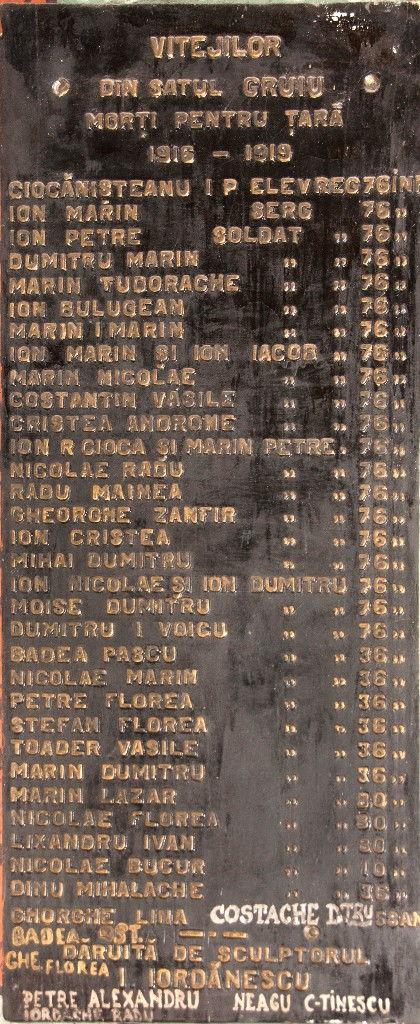 VITEJILOR
DIN SATUL GRUIU
MORȚI PENTRU ȚARĂ
1916 – 1919
CIOCĂNIȘTEANU I P ELEV REG 76 IN
ION MARIN SERG 76 „
ION PETRE SOLDAT „ 76 „
DUMITRU MARIN „ „ 76 „
MARIN TUDORACHE „ „ 76 „
ION BULUGEAN „ „ 76 „
MARIN I MARIN „ „ 76 „
ION MARIN ȘI ION IACOB „ 76 „
MARIN NICOLAE „ „ 76 „
COSTANTIN VASILE „ „ 76 „
CRISTEA ANDRONE „ „ 76 „
ION R CIOCA ȘI MARIN PETRE „ 76 „
NICOLAE RADU „ „ 76 „
RADU MAINEA „ „ 76 „
GHEORGHE ZANFIR „ „ 76 „
ION CRISTEA „ „ 76 „
MIHAI DUMITRU „ „ 76 „
ION NICOLAE ȘI ION DUMITRU „ 76 „
MOISE DUMITRU „ „ 76 „
DUMITRU I VOICU „ „ 76 „
BADEA PASCU „ „ 36 „
NICOLAE MARIN „ „ 36 „
PETRE FLOREA „ „ 36 „
STEFAN FLOREA „ „ 36 „
TOADER VASILE „ „ 36 „
MARIN DUMITRU „ „ 36 „
MARIN LAZAR „ „ 80 „
NICOLAE FLOREA „ „ 80 „
LIXANDRU IVAN „ „ 80 „
NICOLAE BUCUR „ „ 10 „
DINU MIHALACHE „ „ 36 „
GHORGHE LINA COSTACHE
BADEA ST.
DARUITĂ DE SCULPTORUL
GHE. FLOREA
I IORDĂNESCU
PETRE ALEXANDRU NEAGU C-TINESCU
IORDACHE RADU